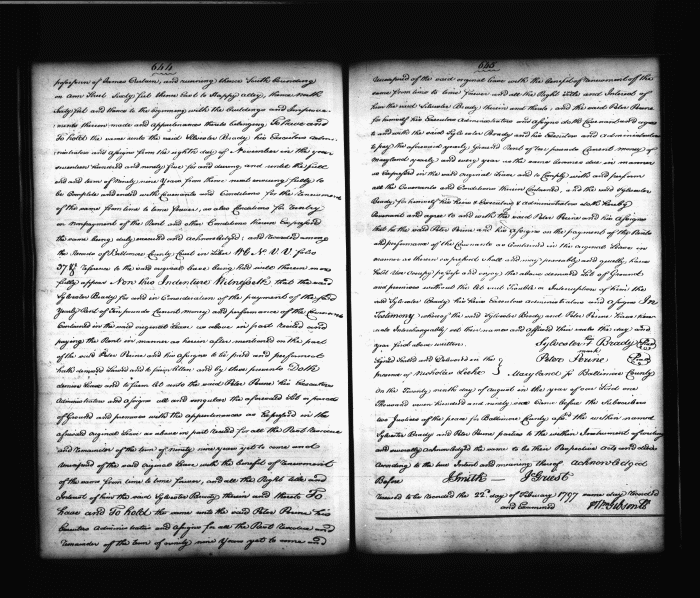 644
possession of James Cretain, and running thence South bounding
on Ann Street Sixty feet thence East to Happy alley, thence north
Sixty feet and thence to the beginning with the buildings and Improve-
-ments thereon made and appurtenances thereto belonging. To have and
To hold the same unto the said Sylvester Brady, his Executors Admi-
-nistrators and assigns from the eighth day of November in the year
seventeen hundred and ninety five for and during, and until the full
end and term of Ninety nine Years from thence next ensuing fully to
be Complete and ended with Covenants and Conditions for the Renewment
of the same from time to time forever, as also Conditions for Reentry
on nonpayment of the Rent and other Conditions therein Expressed
the same being duly executed and acknowledged, and recorded among
the Records of Baltimore County Court in Liber W G N. V. V. folio
378 &c reference to the said original lease being had will therein more
fully appear Now this Indenture Witnesseth that the said
Sylvester Brady for and in Consideration of the payment of the said
Yearly Rent of Ten pounds Current money and performance of the Covenants
Contained in the said original Lease as above in part recited and
paying the Rent in manner as herein after mentioned on the part
of the said Peter Perine and his assigns to be paid and performed
hath demised Leased and to farm letten and by these presents Doth
demise Lease and to farm let unto the said Peter Perine his Executors
Administrators and assigns all and singular the aforesaid Lot or parcels
of Ground and premises with the appurtenances as Expressed in the
aforesaid original Lease as above in part recited for all the Rest Residue
and Remainder of the term of ninety nine years yet to come and
unexpired of the said original Lease with the benefit of renewment
of the same from time to time forever, and all the Right title and
Interest of him the said Sylvester Brady therein and thereto To
have and To hold the same unto the said Peter Perine his
Executors Administrators and assigns for all the Rest Residue and
Remainder of the term of ninety nine Years yet to come and
645
unexpired of the said original lease with the benefit of renewment of the
same from time to time forever and all the Right title and Interest of
him the said Sylvester Brady therein and thereto, and the said Peter Perine
for himself his Executors Administrators and assigns doth Covenant and agree
to and with the said Sylvester Brady and his Executors and Administrators
to pay the aforesaid yearly Ground Rent of Ten pounds Current money of
Maryland yearly and every year as the same becomes due in manner
as Expressed in the said original Lease and to Comply with and perform
all the Covenants and Conditions therein Contained, and the said Sylvester
Brady for himself his heirs Executors & Administrators doth hereby
Covenant and agree to and with the said Peter Perine and his Assigns
that he the said Peter Perine and his Assigns on the payment of the Rents
and performance of the Covenants as Contained in the original Lease in
manner as therein expressed shall and may peaceably and quietly have
hold Use Occupy possess and enjoy the above demised Lot of Ground
and premises without the let suit Trouble or Interruption of him the
said Sylvester Brady his heirs Executors Administrators and assigns In
Testimony whereof the said Sylvester Brady and Peter Perine have here-
unto Interchangeably set their names and affixed their seals the day and
year first above written. Sylvester Brady Seal
mark
Signed Sealed and Delivered in the Peter Perine Seal
presence of Nicholas Leeke Maryland ss Baltimore County
On the Twenty ninth day of August in the year of our Lord one
Thousand seven hundred and ninety six Came before the Subscribers
two Justices of the peace for Baltimore County aforsd. the within named
Sylvester Brady and Peter Perine parties to the within Instrument of writing
and severally acknowledged the same to be their Respective Acts and deeds
According to the true Intent and meaning thereof acknowledged
Before J Smith — J Griest
Received to be Recorded the 22d day of February 1797 same day Recorded
and Examined Wm Gibson Clk